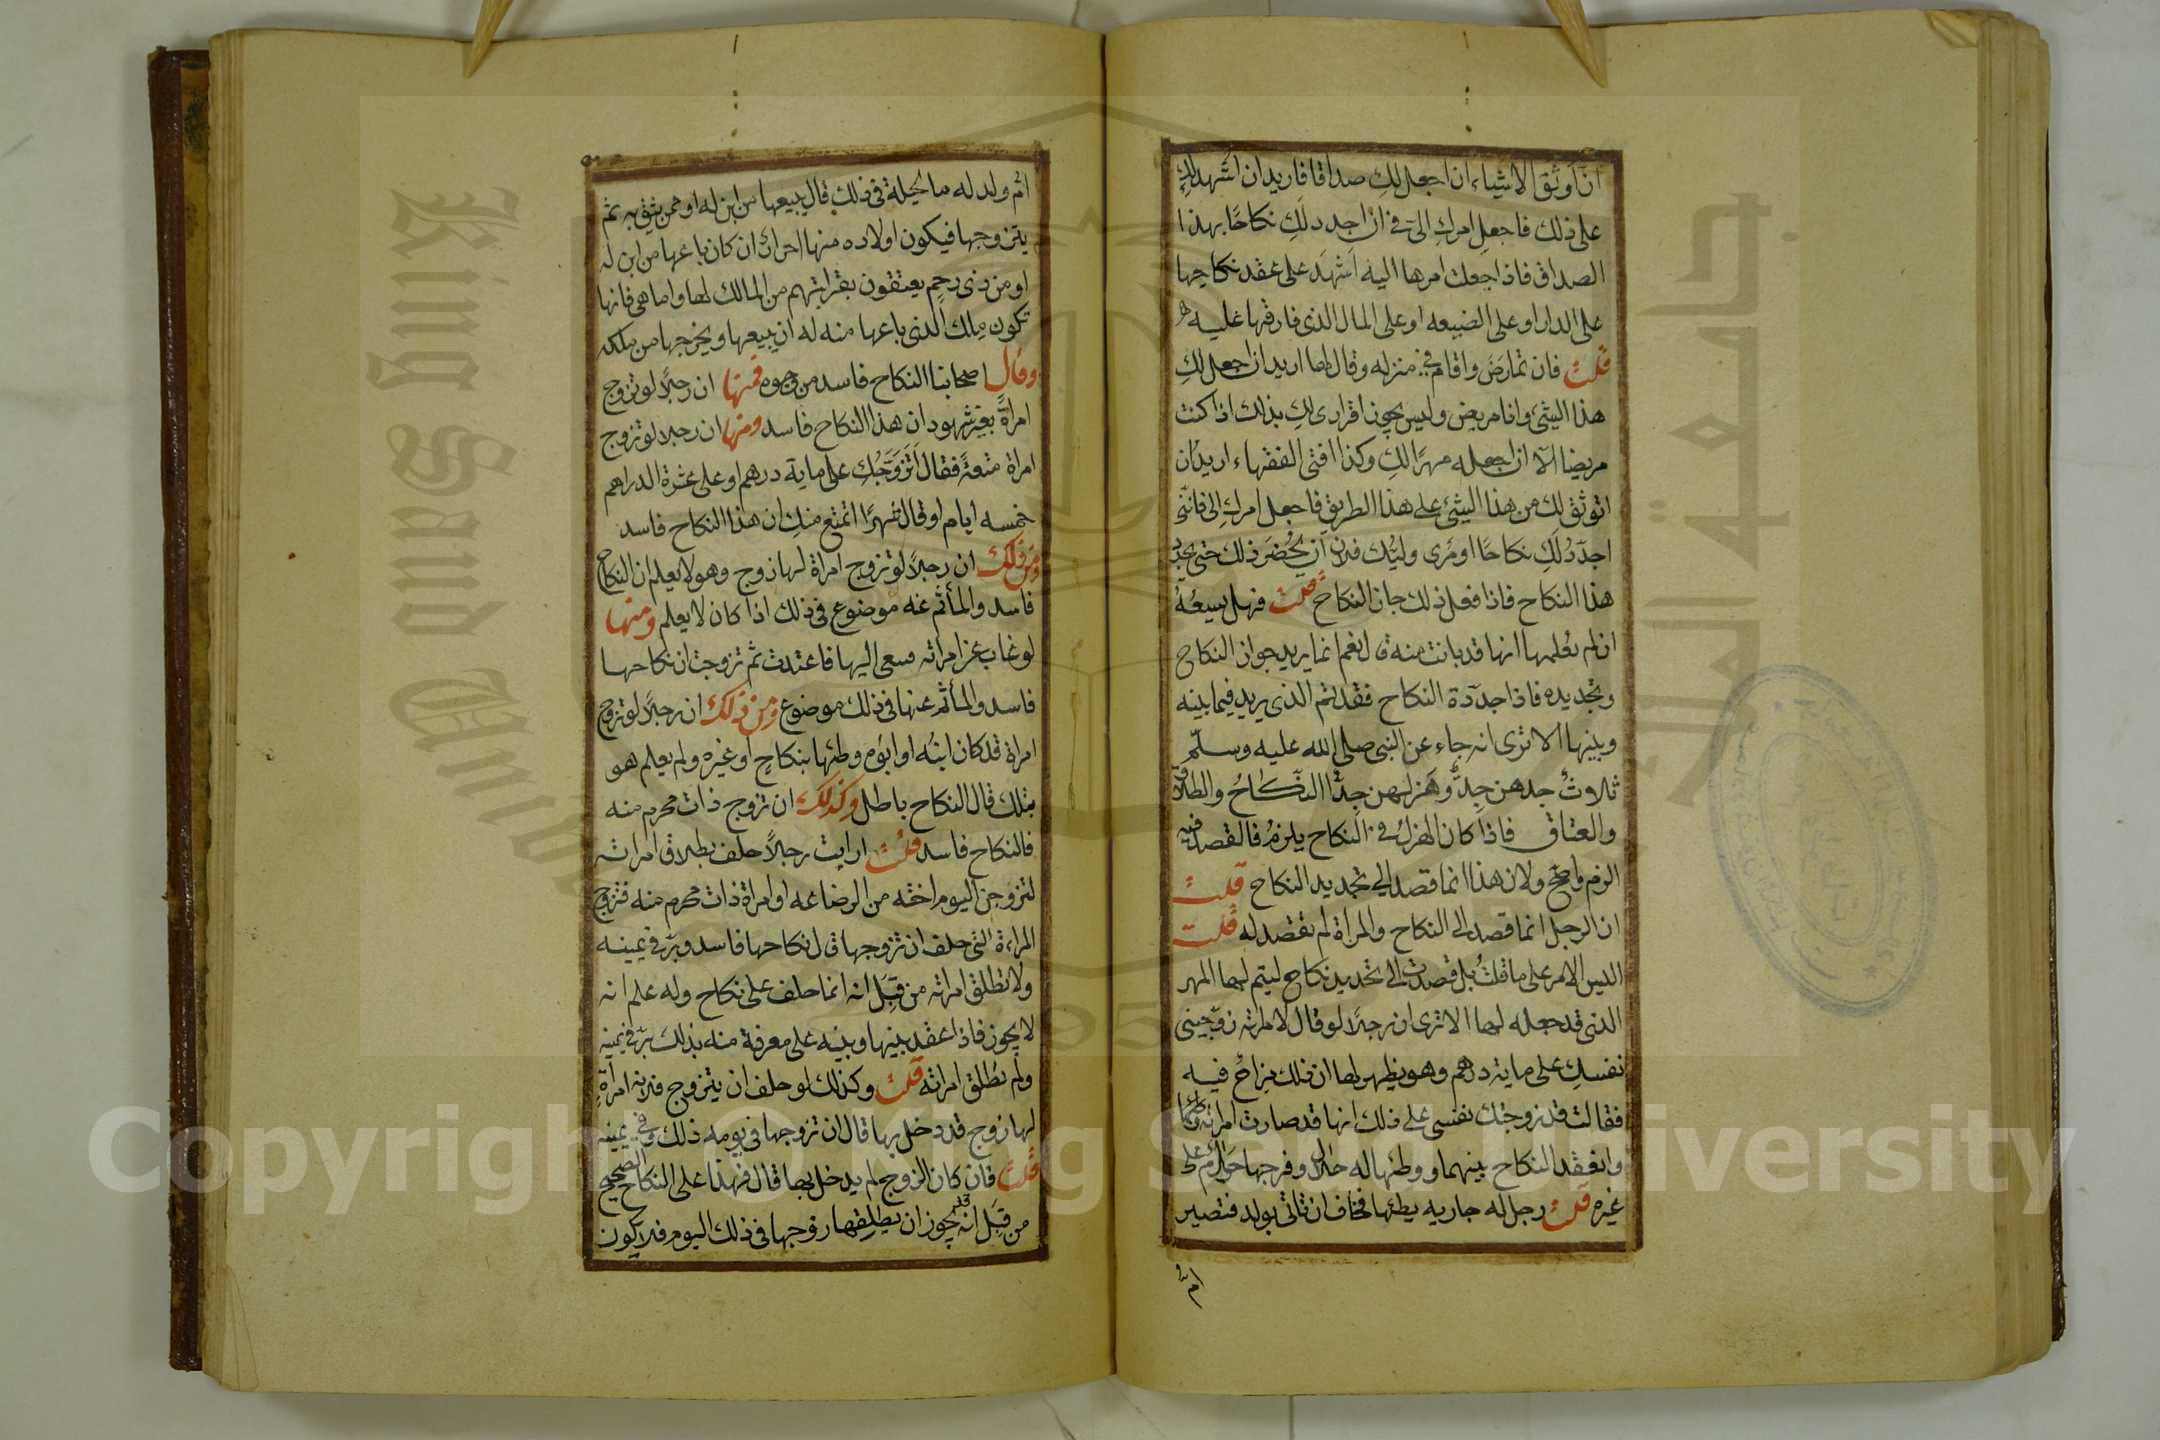 ان اوثق الاشياء ان اجعل لكِ صداقا فاريد ان اشهد لكِ
على ذلك فاجعل امركِ الىّ فى ان اجدد لكِ نكاحًا بهذا
الصداق فاذا جعلت امرها اليه اشهد على عقد نكاحها
على الدار او على الضيعه او على المال الذى فارقها عليه
قلتُ فان تمارض واقام فى منزله وقال لها اريد ان اجعل لكِ
هذا الشئ وانا مريض وليس يجوز اقرارى لكِ بذلك اذا كنت
مريضا الّا ان اجعله مهرًا لكِ وكذا افتى الفقهاء اريد ان
اتوثق لك من هذا الشئ على هذا الطريق فاجعل امركِ الى فاننى
اجدّد لكِ نكاحًا او مرى وليّك فلان ان يحضر ذلك حتى يجدد
هذا النكاح فاذا فعل ذلك جاز النكاح قلت فهل يسعهُ
ان لم يعلمها انها قد بانت منه قال نعم انما يريد جواز النكاح
وتجديده فاذا جددة النكاح فقد تم الذى يريد فيما بينه
وبينها الا ترى انه جاء عن النبى صلى الله عليه وسلّم
ثلاوثٌ جدهن جدٌّ وهزلهن جدٌّ النّكاحُ والطلاق
والعتاق فاذا كان الهزلُ فى النكاح يلزمُ فالقصد فيه
الزم واصحّ ولان هذا انما قصد الى تجديد النكاح قلتُ
ان الرجل انما قصد الى النكاح والمراة لم تقصد له قلت
اليس الامر على ما قلتُ بل قصدت الى تجديد نكاح ليتم لها المهر
الذى قد جعله لها الا ترى ان رجلًا لو قال لامراته زوّجينى
نفسكِ على ماية درهم وهو يظهر لها ان ذلك مزاحٌ فيه
فقالت قد زوجتك نفسى على ذلك انها قد صارت امراته
وانعقد النكاح بينهما ووطئها له حلالٌ وفرجها حرامٌ على
غيره قلتُ رجل له جاريه يطئها فخاف ان تاتى بولد فتصير
امّ
امّ ولد له ما الحيلة فى ذلك قال يبيعها من ابن له او ممن يثق به ثم
يتزوجها فيكون اولاده منها احرارًا ان كان باعها من ابن له
او من ذى رحم يعتقون بقرابتهم من المالك لها واما هى فانها
تكون ملك الذى باعها منه له ان يبيعها ويخرجها من ملكه
وقال اصحابنا النكاح فاسد من وجوه فمنها ان رجلًا لو تزوج
امراةً بغير شهود ان هذا النكاح فاسد ومنها ان رجلا لو تزوج
امراة متعةً فقال اتزوّجُكِ على ماية درهم او على عشرة الدراهم
خمسه ايام او قال شهرًا اتمتع منكِ ان هذا النكاح فاسد
ومن ذلك ان رجلًا لو تزوج امراة لها زوج وهو لا يعلم ان النكاح
فاسد والمأثم عنه موضوع فى ذلك اذا كان لا يعلم ومنها
لو غاب عن امراته فنعى اليها فاعتدت ثم تزوجت ان نكاحها
فاسد والمأثم عنها فى ذلك موضوع ومن ذلك ان رجلًا لو تزوج
امراة قد كان ابنُه او ابوُه وطئها بنكاحٍ او غيره ولم يعلم هو
بتلك قال النكاح باطل وكذلك ان تزوج ذات محرم منه
فالنكاح فاسد قلتُ ارايت رجلًا حلف بطلاق امراته
لتزوجن اليوم اخته من الرضاعه او امراة ذات محرم منه فتزوج
المراءة التى حلف ان تزوجها قال نكاحها فاسد وبرّ فى يمينه
ولا تطلق امراته من قِبَل انه انما حلف على نكاح وله علم انه
لا يجوز فاذا عقد بينها وبينه على معرفة منه بذلك برّ فى يمينه
ولم تطلق امراته قلت وكذلك لو حلف ان يتزوج فلانة امراةٍ
لها زوج قد دخل بها قال ان تزوجها فى يومه ذلك وفى يمينه
قلتُ فان كان الزوج لم يدخل بها قال فهذا على النكاح الصحيح
من قِبَل انه قد يجوز ان يطلقها زوجها فى ذلك اليوم فلا يكون